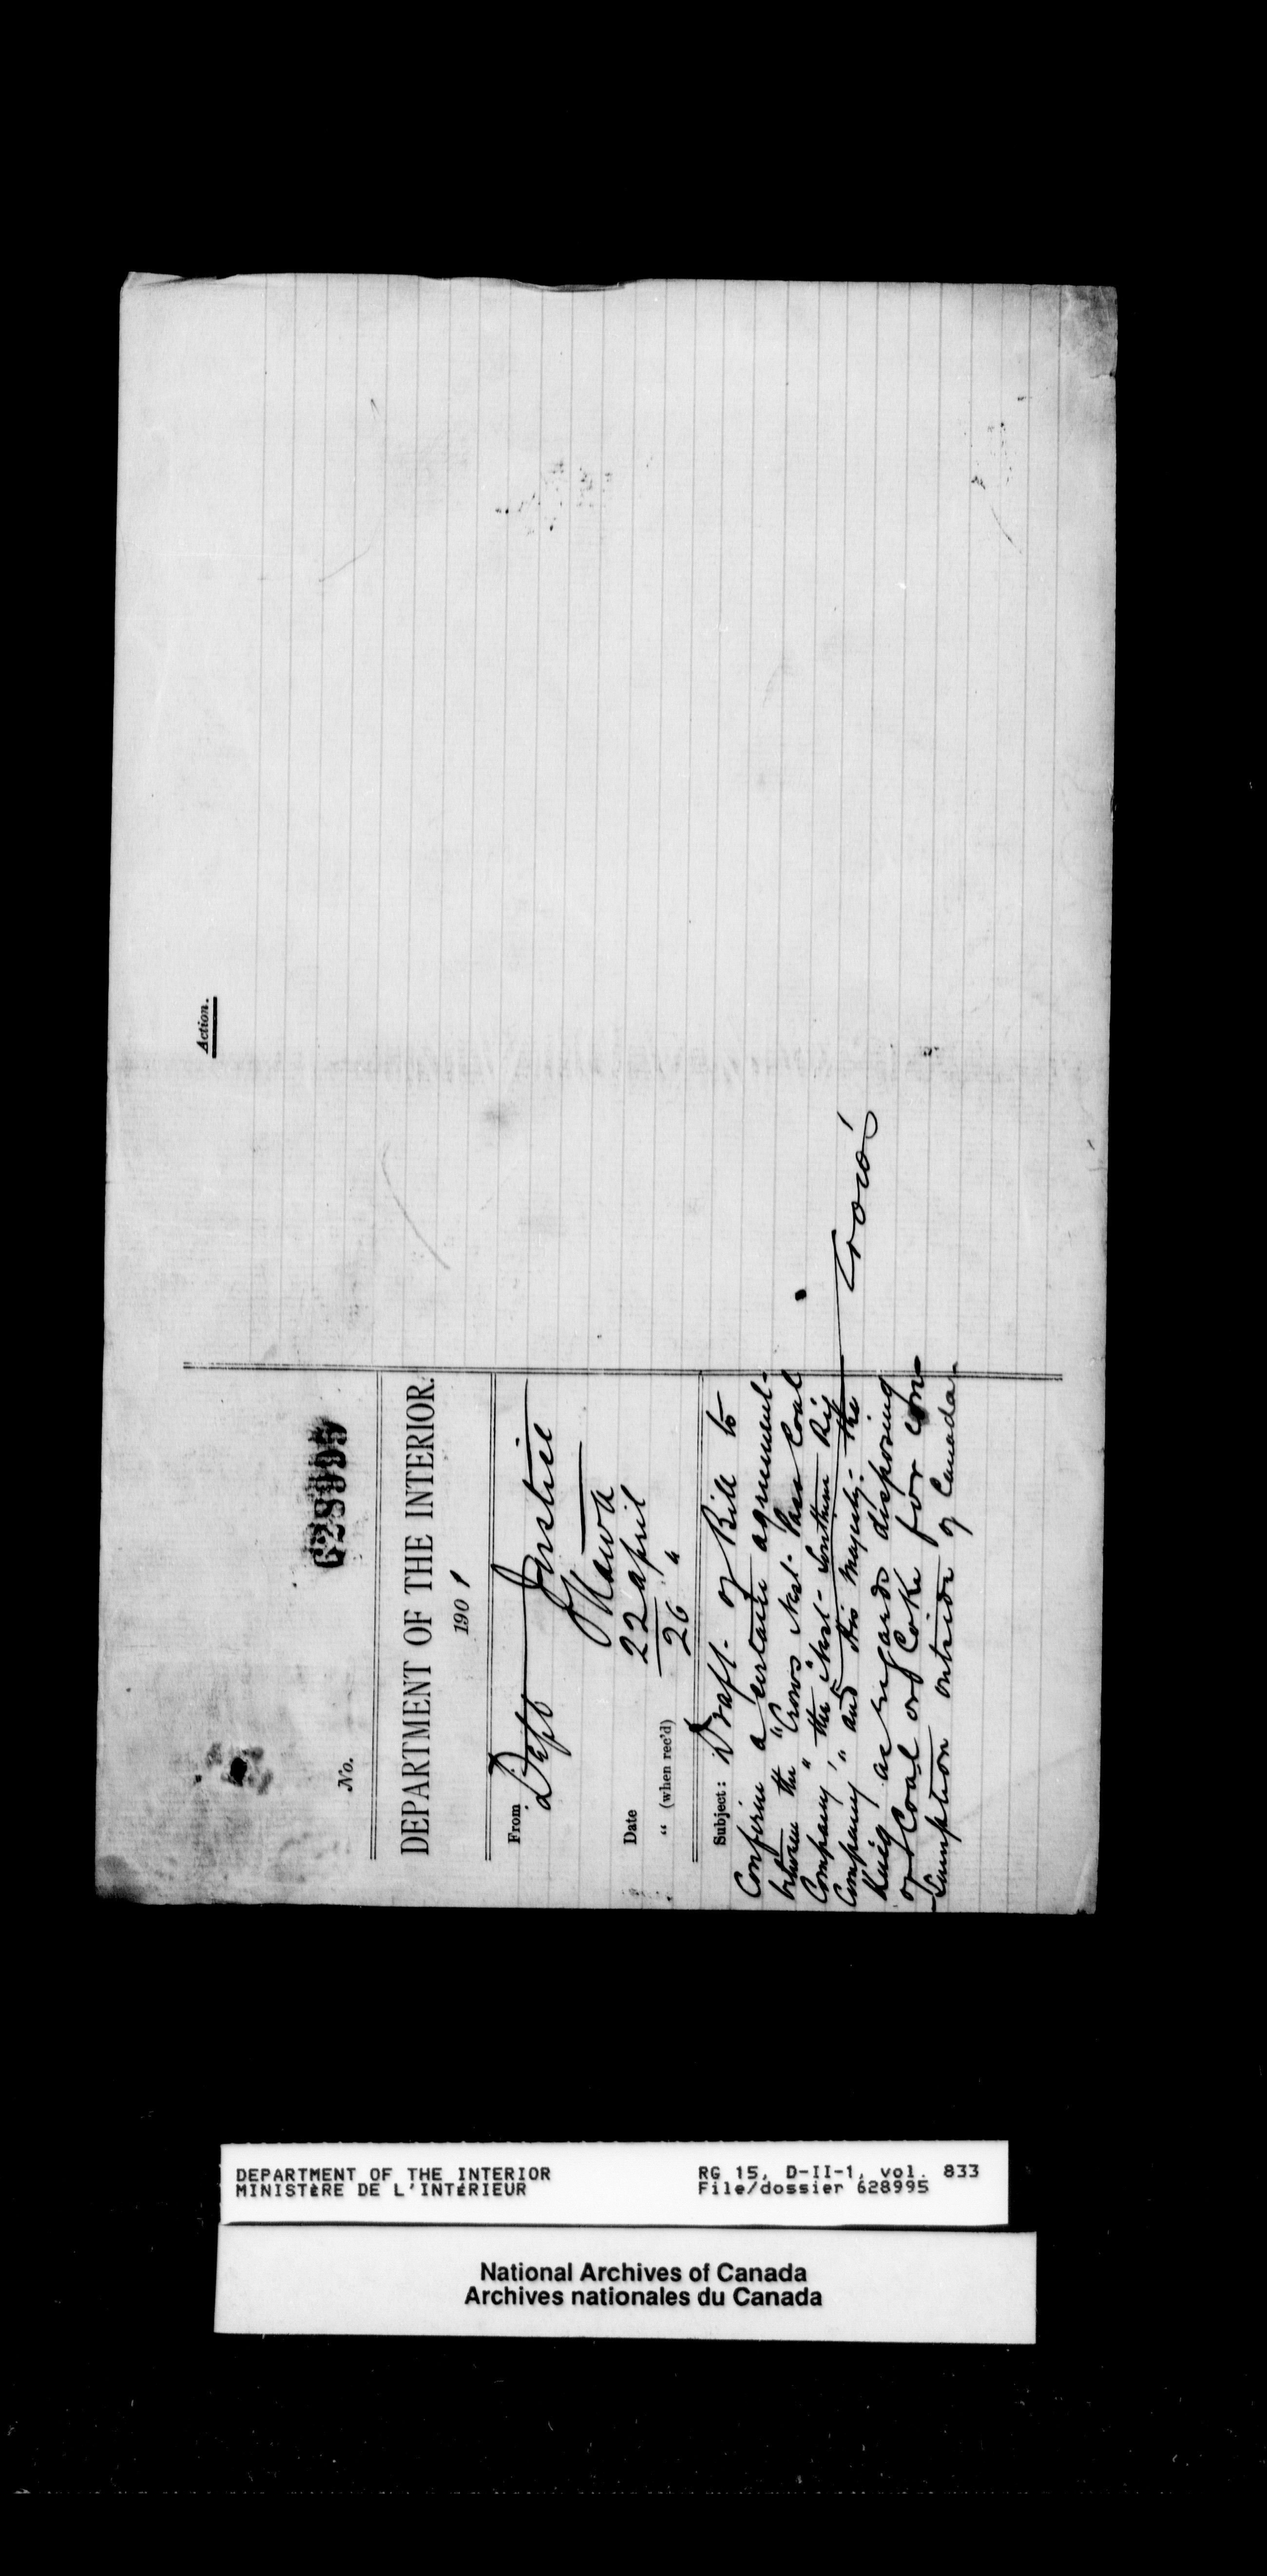 Action.
No. 628995
DEPARTMENT OF THE INTERIOR.
1901
From Dept Justice
Ottawa
Date 22 April
" (when rec'd) 26 "
Subject: Draft of Bill to
Confirm a certain agreement
between the "Crows Nest Pass Coal
Company", the "Nest Southern Ry
Company" and His Majesty the
King as regards disposing
of Coal or Coke for con-
sumption outside of Canada.
DEPARTMENT OF THE INTERIOR
MINISTÈRE DE L'INTÉRIEUR
RG 15, D-II-1, vol. 833
File/dossier 628995
National Archives of Canada
Archives nationales du Canada